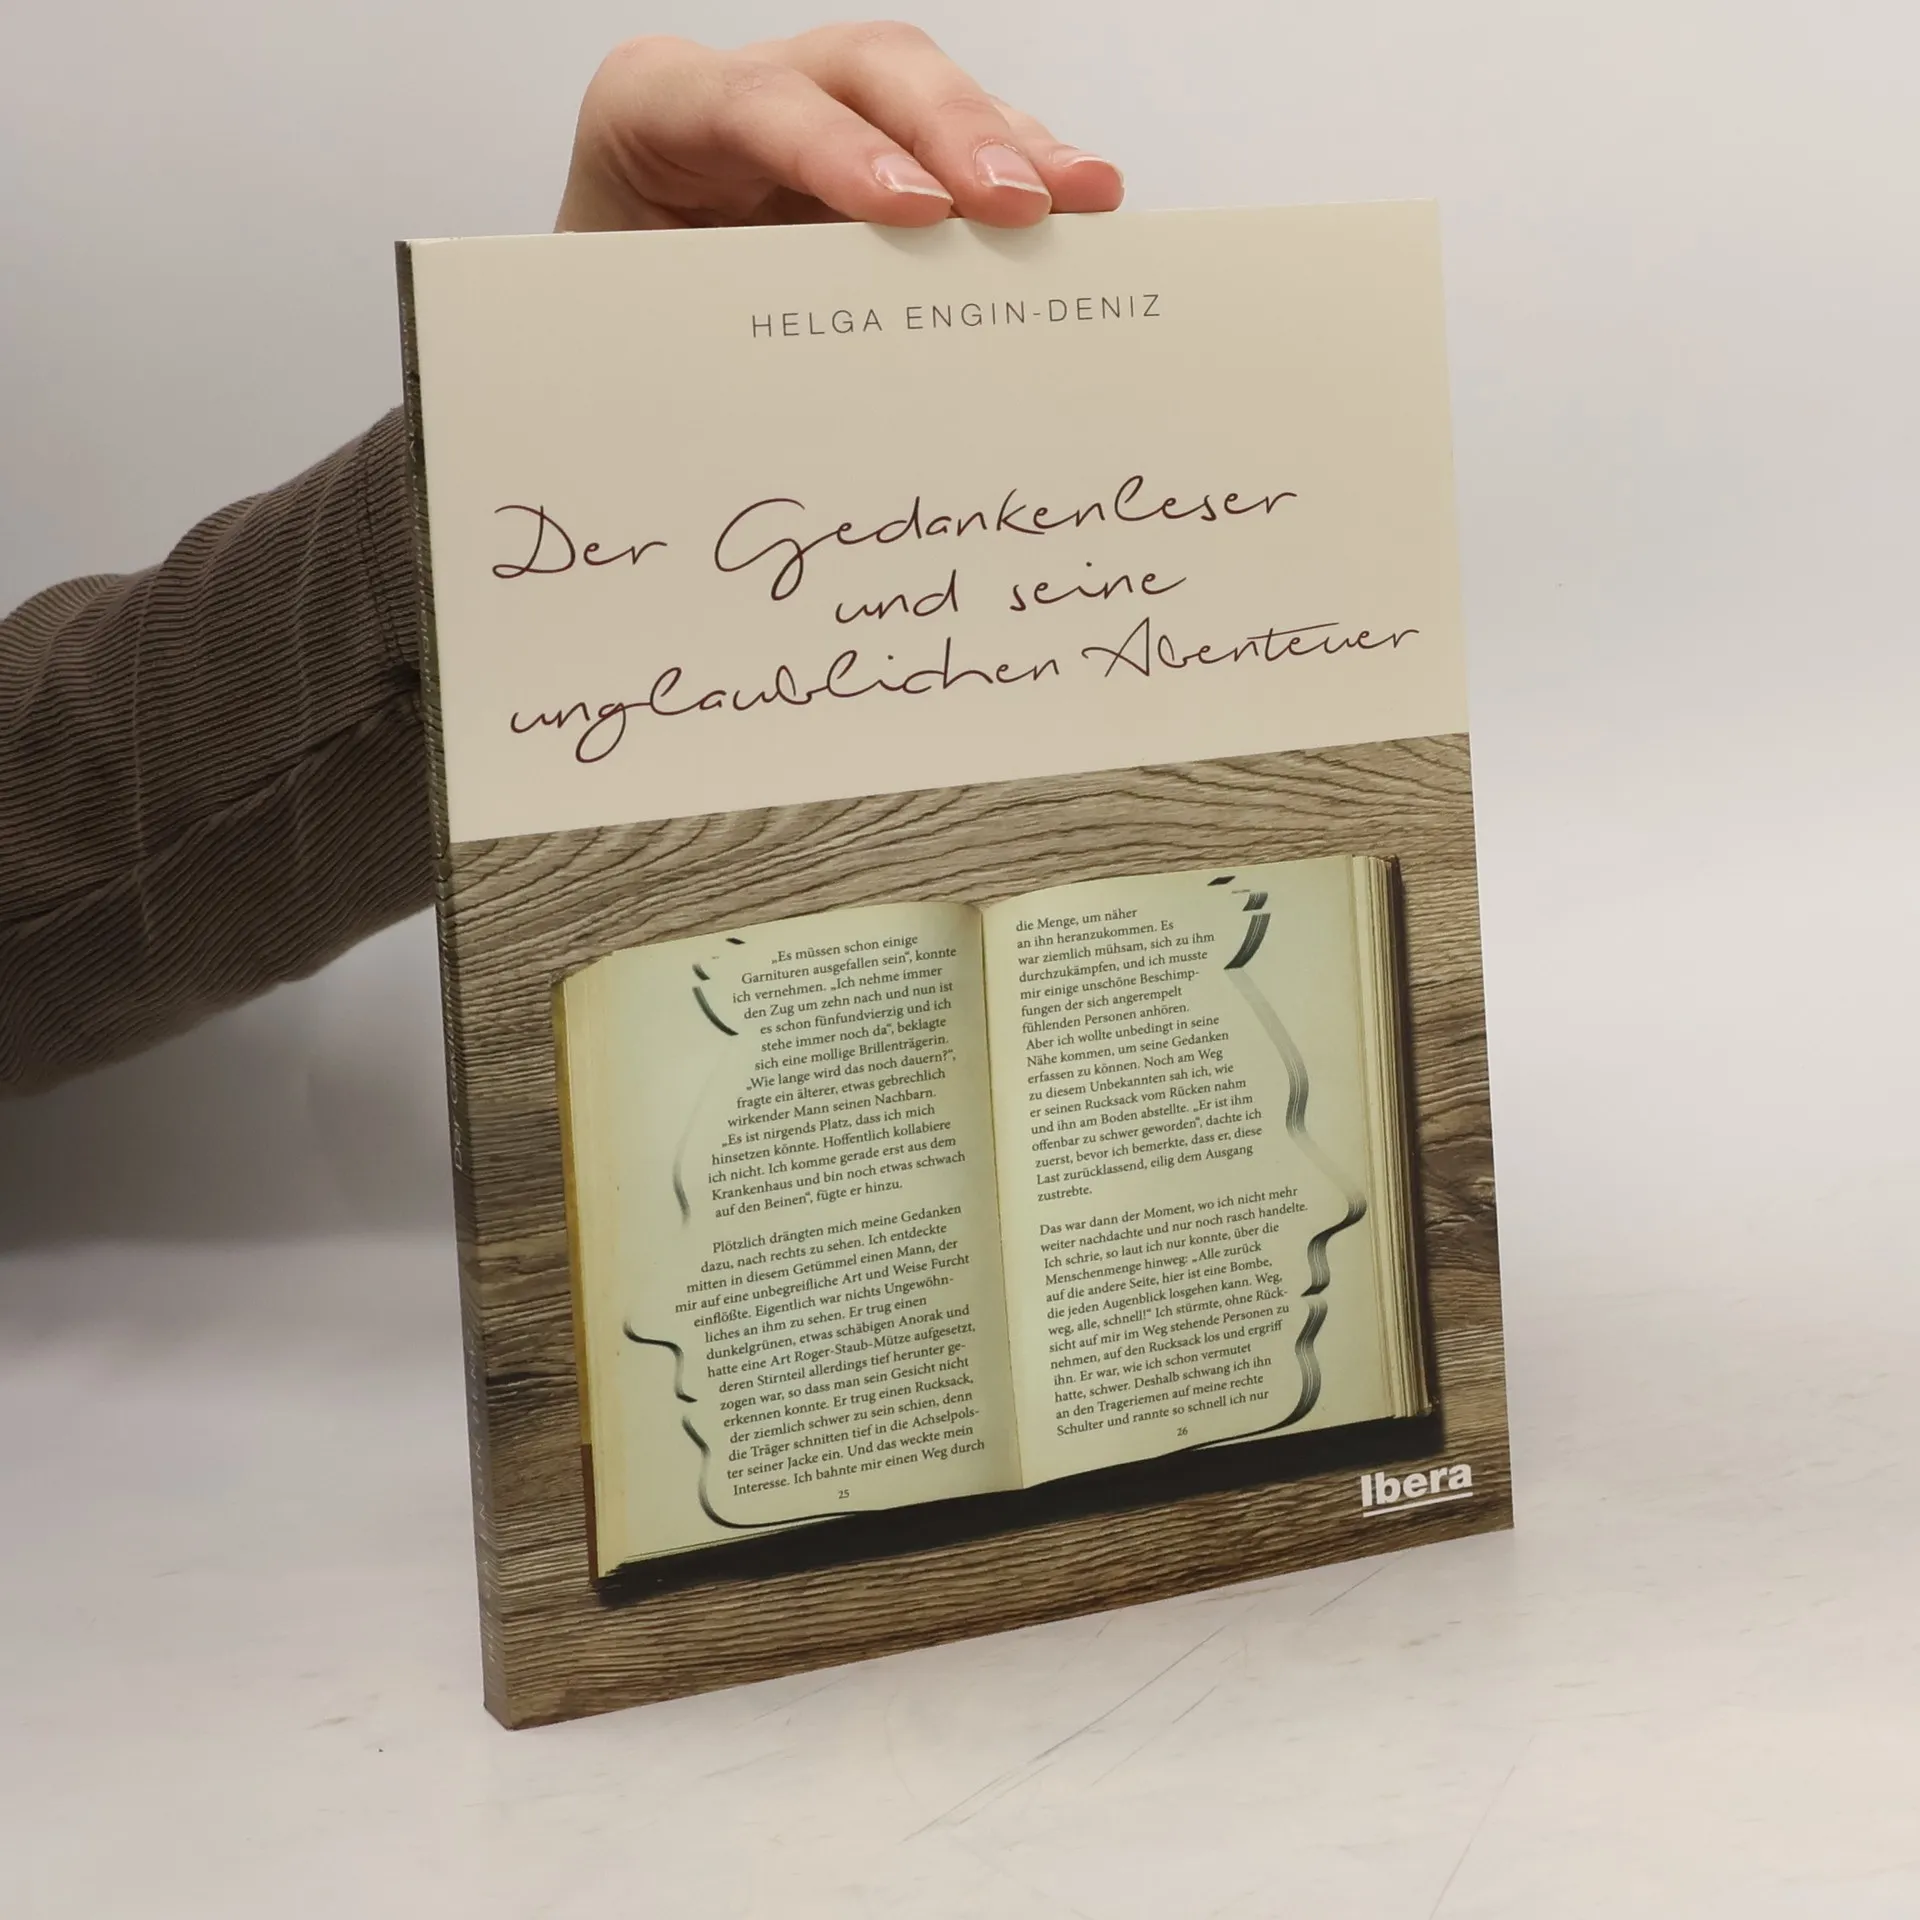 HELGA ENGIN-DENIZ
Der Gedankenleser
und seine
unglaublichen Abenteuer
„Es müssen schon einige
Garnituren ausgefallen sein“, konnte
ich vernehmen. „Ich nehme immer
den Zug um zehn nach und nun ist
es schon fünfundvierzig und ich
stehe immer noch da“, beklagte
sich eine mollige Brillenträgerin.
„Wie lange wird das noch dauern?“,
fragte ein älterer, etwas gebrechlich
wirkender Mann seinen Nachbarn.
„Es ist nirgends Platz, dass ich mich
hinsetzen könnte. Hoffentlich kollabiere
ich nicht. Ich komme gerade erst aus dem
Krankenhaus und bin noch etwas schwach
auf den Beinen“, fügte er hinzu.
Plötzlich drängten mich meine Gedanken
dazu, nach rechts zu sehen. Ich entdeckte
mitten in diesem Getümmel einen Mann, der
mir auf eine unbegreifliche Art und Weise Furcht
einflößte. Eigentlich war nichts Ungewöhn-
liches an ihm zu sehen. Er trug einen
dunkelgrünen, etwas schäbigen Anorak und
hatte eine Art Roger-Staub-Mütze aufgesetzt,
deren Stirnteil allerdings tief herunter ge-
zogen war, so dass man sein Gesicht nicht
erkennen konnte. Er trug einen Rucksack,
der ziemlich schwer zu sein schien, denn
die Träger schnitten tief in die Achselpols-
ter seiner Jacke ein. Und das weckte mein
Interesse. Ich bahnte mir einen Weg durch
25
die Menge, um näher
an ihn heranzukommen. Es
war ziemlich mühsam, sich zu ihm
durchzukämpfen, und ich musste
mir einige unschöne Beschimp-
fungen der sich angerempelt
fühlenden Personen anhören.
Aber ich wollte unbedingt in seine
Nähe kommen, um seine Gedanken
erfassen zu können. Noch am Weg
zu diesem Unbekannten sah ich, wie
er seinen Rucksack vom Rücken nahm
und ihn am Boden abstellte. „Er ist ihm
offenbar zu schwer geworden“, dachte ich
zuerst, bevor ich bemerkte, dass er, diese
Last zurücklassend, eilig dem Ausgang
zustrebte.
Das war dann der Moment, wo ich nicht mehr
weiter nachdachte und nur noch rasch handelte.
Ich schrie, so laut ich nur konnte, über die
Menschenmenge hinweg: „Alle zurück
auf die andere Seite, hier ist eine Bombe,
die jeden Augenblick losgehen kann. Weg,
weg, alle, schnell!“ Ich stürmte, ohne Rück-
sicht auf mir im Weg stehende Personen zu
nehmen, auf den Rucksack los und ergriff
ihn. Er war, wie ich schon vermutet
hatte, schwer. Deshalb schwang ich ihn
an den Trageriemen auf meine rechte
Schulter und rannte so schnell ich nur
26
Ibera